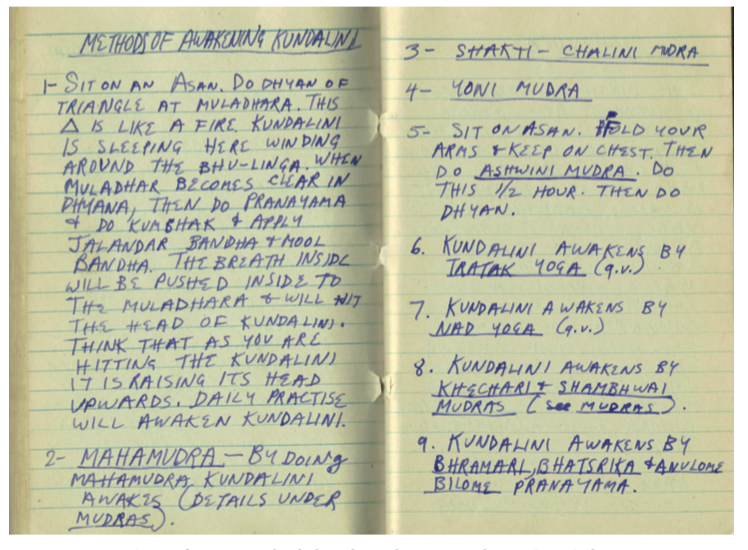 METHODS OF AWAKENING KUNDALINI
1- SIT ON AN ASAN. DO DHYAN OF
TRIANGLE AT MULADHARA. THIS
△ IS LIKE A FIRE. KUNDALINI
IS SLEEPING HERE WINDING
AROUND THE BHU-LINGA. WHEN
MULADHAR BECOMES CLEAR IN
DHYANA, THEN DO PRANAYAMA
& DO KUMBHAK & APPLY
JALANDAR BANDHA & MOOL
BANDHA. THE BREATH INSIDE
WILL BE PUSHED INSIDE TO
THE MULADHARA & WILL HIT
THE HEAD OF KUNDALINI.
THINK THAT AS YOU ARE
HITTING THE KUNDALINI
IT IS RAISING ITS HEAD
UPWARDS. DAILY PRACTISE
WILL AWAKEN KUNDALINI.
2- MAHAMUDRA - BY DOING
MAHAMUDRA KUNDALINI
AWAKES (DETAILS UNDER
MUDRAS).
3- SHAKTI - CHALINI MUDRA
4- YONI MUDRA
5- SIT ON ASAN. FOLD YOUR
ARMS & KEEP ON CHEST. THEN
DO ASHWINI MUDRA. DO
THIS 1/2 HOUR. THEN DO
DHYAN.
6. KUNDALINI AWAKENS BY
TRATAK YOGA (q.v.)
7. KUNDALINI AWAKENS BY
NAD YOGA (q.v.)
8. KUNDALINI AWAKENS BY
KHECHARI & SHAMBHWAI
MUDRAS (SEE MUDRAS).
9. KUNDALINI AWAKENS BY
BHRAMARI, BHATSRIKA & ANULOME
BILOME PRANAYAMA.